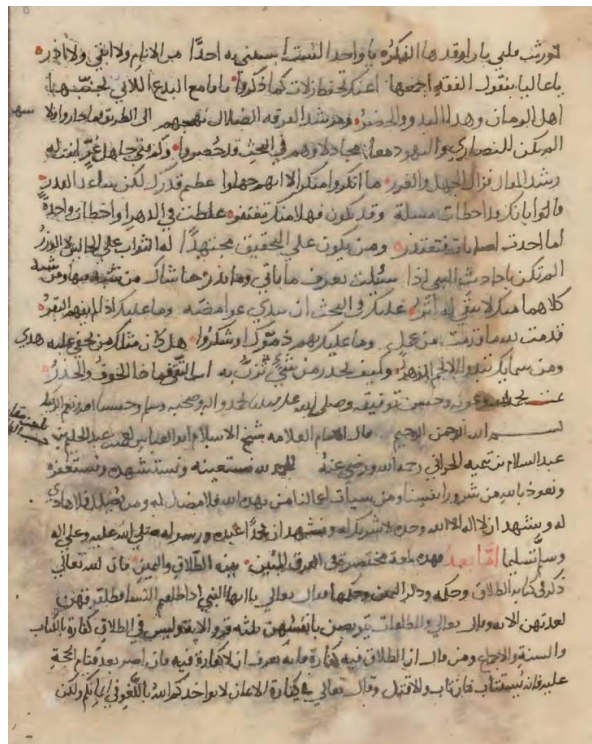 تورثت علمي يا را وقد ها الفكره يا واحدا لست اسمي به احدا من الانام ولا ابقي ولا اذر
يا عالما بنقول الفقه اجمعها اعنك تحفظ زلات كما ذكروا يا قامع البدع اللاتي تجنبها
اهل الزمان وهذا البدو والحضر ومرشد الفرقه الضلال نهجهم الى الطريق فما حاروا ولا سهروا
الم تكن للنصارى واليهود معا مجادلا وهم في البحث قد حصروا وكم فتى جاهل غر ابنت له
رشد المقال فزال الجهل والغرر ما انكروا منك الا انهم جهلوا عظيم قدرك لكن ساعد القدر
قالوا بانك قد اخطات مسئلة وقد تكون فهلا منك تغتفر غلطت في الدهر او اخطات واحدة
اما اجدت اصابات فتعتذر ومن يكون على التحقيق مجتهدا له الثواب على الحالين لا الوزر
الم تكن باحاديث النبي اذا سئلت تعرف ما تاتي وما تذر حاشاك من شبه فيها ومن شبه
كلاهما منك لا يبقى له اثر عليك في البحث ان تبدي غوامضه وما عليك اذا لم تفهم البقر
قدمت لله ما قدمت من عمل وما عليك بهم ذموك او شكروا هل كان مثلك من يخفى عليه هدى
ومن سمائك تبدو الانجم الزهر وكيف تحذر من شيء تزل به انت التقي فماذا الخوف والحذر
تمت بحمد الله وعونه وحسن توفيقه وصلى الله على محمد واله وصحبه وسلم وحسبنا الله ونعم الوكيل
بسم الله الرحمن الرحيم قال الامام العلامه شيخ الاسلام ابو العباس احمد بن عبد الحليم بن
عبد السلام بن تيميه الحراني رحمه الله ورضي عنه الحمد لله نستعينه ونستشهده ونستغفره
ونعوذ بالله من شرور انفسنا ومن سيات اعمالنا من يهده الله فلا مضل له ومن يضلل فلا هادي
له ونشهد ان لا اله الا الله وحده لا شريك له ونشهد ان محمدا عبده ورسوله صلى الله عليه وعلى اله
وسلم تسليما اما بعد فهذه لمعة مختصرة في الفرق المبين بين الطلاق واليمين فان الله تعالى
ذكر في كتابه الطلاق وحكمه وذكر اليمين وحكمها فقال تعالى يا ايها النبي اذا طلقتم النسا فطلقوهن
لعدتهن الايه وقال تعالى والمطلقات يتربصن بانفسهن ثلثه قرو الايه وليس في الطلاق كفارة بالكتاب
والسنة والاجماع ومن قال ان الطلاق فيه كفارة فانه يعرف ان لا كفارة فيه فان اصر بعد قيام الحجة
عليه فانه يستتاب فان تاب والا قتل وقال تعالى في كفارة الايمان لا يواخذكم الله باللغو في ايمانكم ولكن